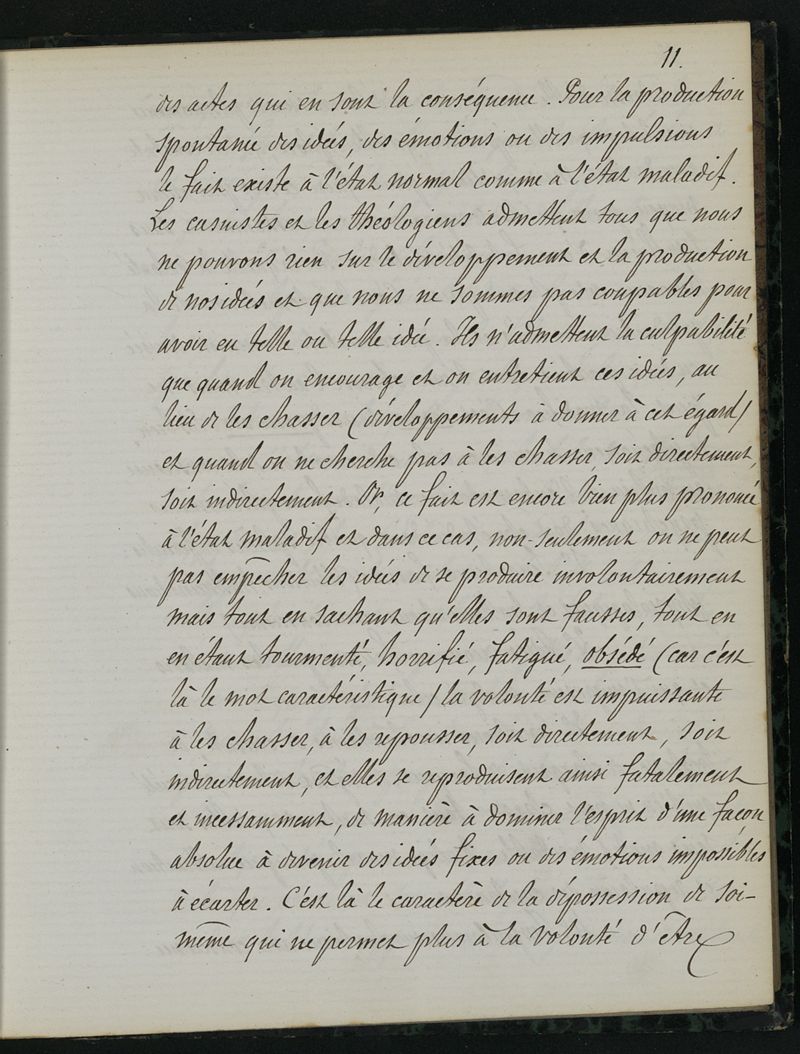 11.
des actes qui en sont la conséquence. Pour la production
spontanée des idées, des émotions ou des impulsions
le fait existe à l'état normal comme à l'état maladif.
Les casuistes et les théologiens admettent tous que nous
ne pouvons rien sur le développement et la production
de nos idées et que nous ne sommes pas coupables pour
avoir eu telle ou telle idée. Ils n'admettent la culpabilité
que quand on encourage et on entretient ces idées, au
lieu de les chasser (développements à donner à cet égard)
et quand on ne cherche pas à les chasser, soit directement,
soit indirectement. Or, ce fait est encore bien plus prononcé
à l'état maladif et dans ce cas, non-seulement on ne peut
pas empêcher les idées de se produire involontairement
mais tout en sachant qu'elles sont fausses, tout en
en étant tourmenté, horrifié, fatigué, obsédé (car c'est
là le mot caractéristique) la volonté est impuissante
à les chasser, à les repousser, soit directement, soit
indirectement, et elles se reproduisent ainsi fatalement
et incessamment, de manière à dominer l'esprit d'une façon
absolue à devenir des idées fixes ou des émotions impossibles
à écarter. C'est là le caractère de la dépossession de soi-
même qui ne permet plus à la volonté d'être